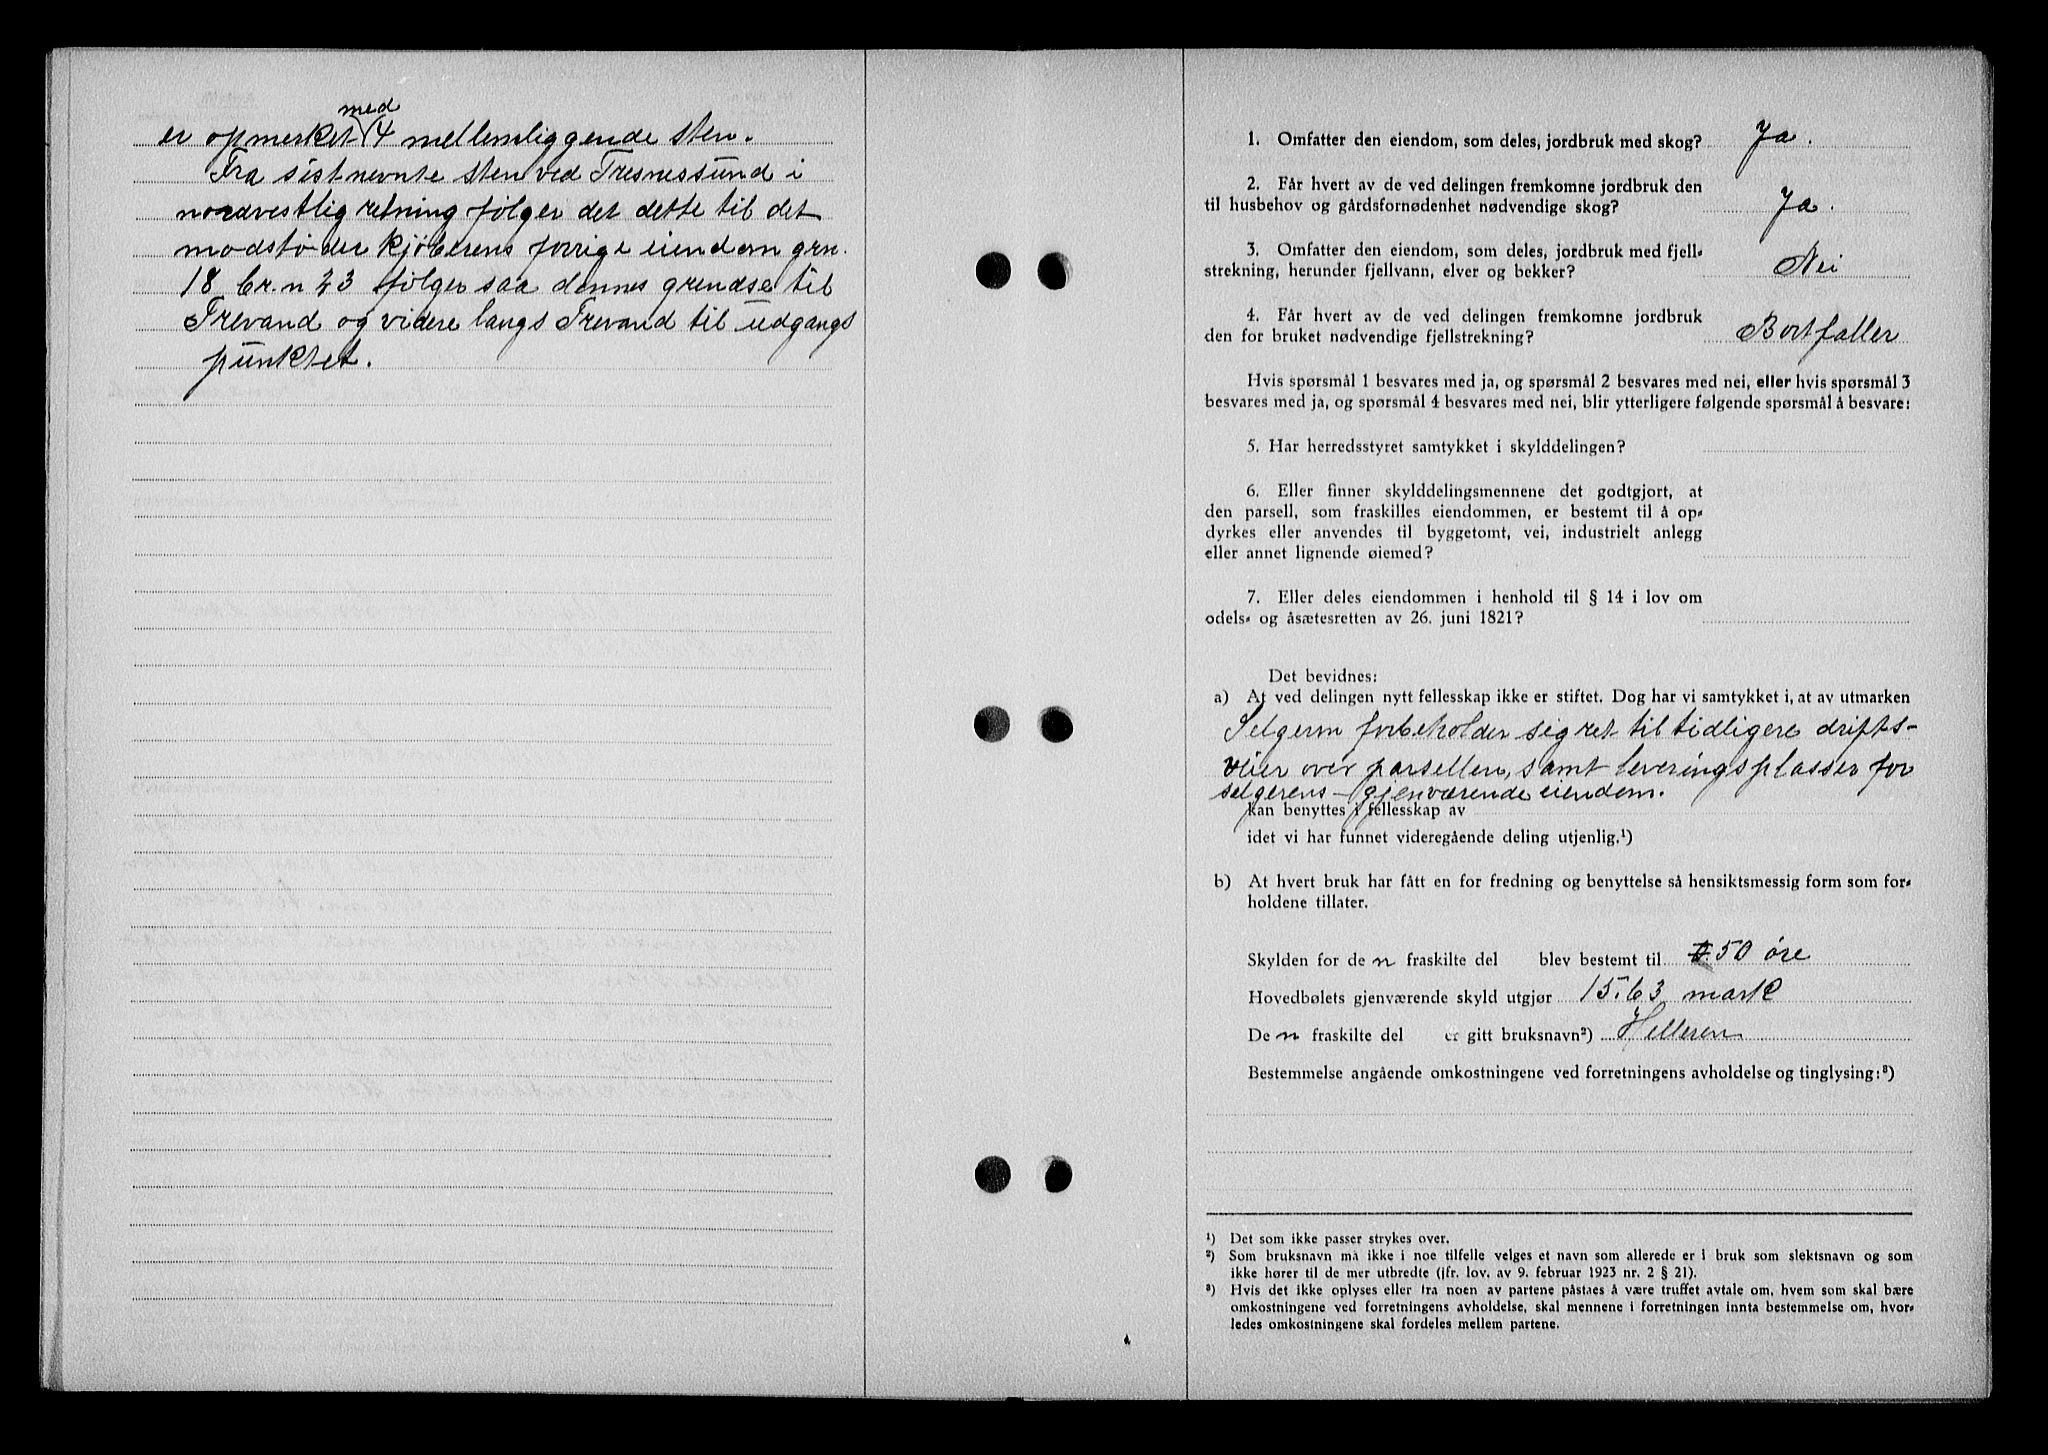 med
er opmerket 4 mellemliggende sten.
Fra sistnevnte sten ved Tresnessund i
nordvestlig retning følger det dette til det
modstøder kjøberens forrige eiendom grn.
18 br.n 23 følger saa dennes grendse til
Trevand og videre langs Trevand til udgangs
punktet.
1. Omfatter den eiendom, som deles, jordbruk med skog? Ja.
2. Får hvert av de ved delingen fremkomne jordbruk den
til husbehov og gårdsfornødenhet nødvendige skog? Ja.
3. Omfatter den eiendom, som deles, jordbruk med fjell-
strekning, herunder fjellvann, elver og bekker? Nei
4. Får hvert av de ved delingen fremkomne jordbruk
den for bruket nødvendige fjellstrekning? Bortfaller
Hvis spørsmål 1 besvares med ja, og spørsmål 2 besvares med nei, eller hvis spørsmål 3
besvares med ja, og spørsmål 4 besvares med nei, blir ytterligere følgende spørsmål å besvare:
5. Har herredsstyret samtykket i skylddelingen?
6. Eller finner skylddelingsmennene det godtgjort, at
den parsell, som fraskilles eiendommen, er bestemt til å op-
dyrkes eller anvendes til byggetomt, vei, industrielt anlegg
eller annet lignende øiemed?
7. Eller deles eiendommen i henhold til § 14 i lov om
odels- og åsætesretten av 26. juni 1821?
Det bevidnes:
a) At ved delingen nytt fellesskap ikke er stiftet. Dog har vi samtykket i, at av utmarken
Selgeren forbeholder sig ret til tidligere drifts-
veier over parsellen, samt leveringsplasser for
selgerens gjenværende eiendom.
kan benyttes i fellesskap av
idet vi har funnet videregående deling utjenlig.¹)
b) At hvert bruk har fått en for fredning og benyttelse så hensiktsmessig form som for-
holdene tillater.
Skylden for de n fraskilte del blev bestemt til 50 øre
Hovedbølets gjenværende skyld utgjør 15.63 mark
De n fraskilte del er gitt bruksnavn²) Helleren
Bestemmelse angående omkostningene ved forretningens avholdelse og tinglysing:³)
¹) Det som ikke passer strykes over.
²) Som bruksnavn må ikke i noe tilfelle velges et navn som allerede er i bruk som slektsnavn og som
ikke hører til de mer utbredte (jfr. lov. av 9. februar 1923 nr. 2 § 21).
³) Hvis det ikke oplyses eller fra noen av partene påstaes å være truffet avtale om, hvem som skal bære
omkostningene ved forretningens avholdelse, skal mennene i forretningen innta bestemmelse om, hvor-
ledes omkostningene skal fordeles mellem partene.